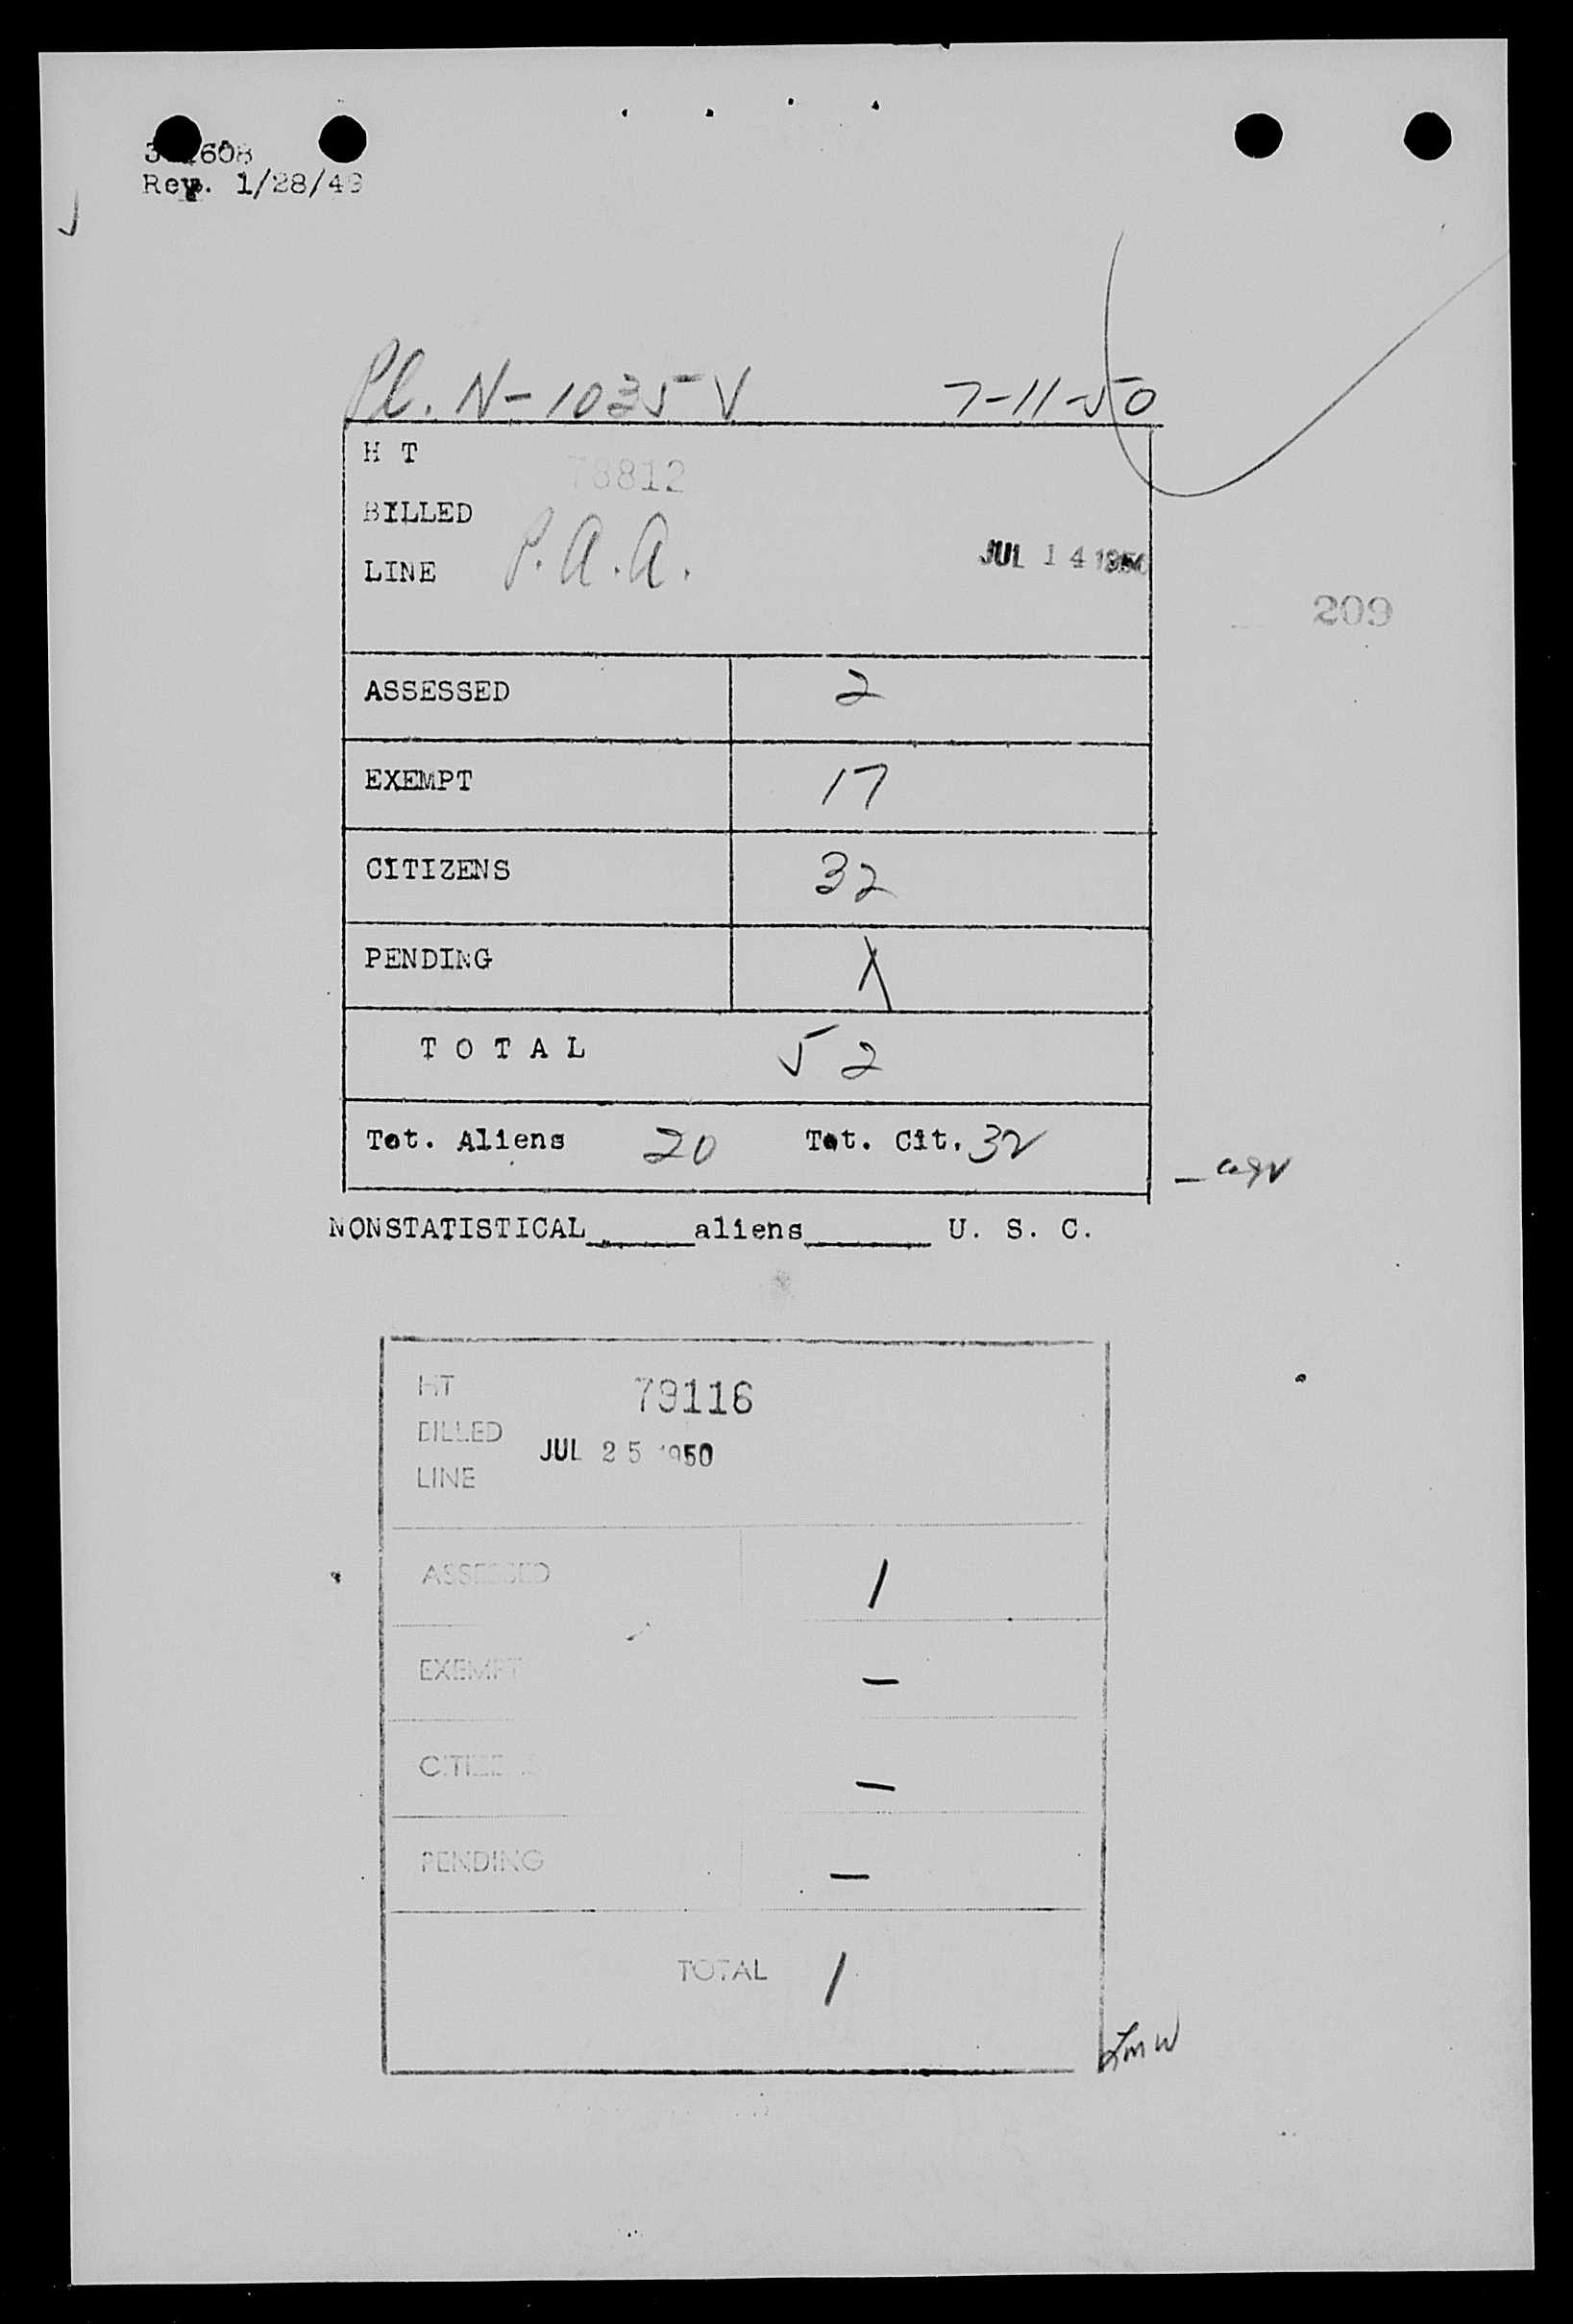 Rev. 1/28/49
Pl. N-1035 V 7-11-50
H T 78812
BILLED
LINE P.A.A. JUL 14 1950
209
ASSESSED 2
EXEMPT 17
CITIZENS 32
PENDING
T O T A L 52
Tot. Aliens 20 Tot. Cit. 32
NONSTATISTICAL______aliens_______ U. S. C.
HT 79116
BILLED JUL 25 1950
LINE
ASSESSED 1
EXEMPT —
CITIZENS —
PENDING —
TOTAL 1